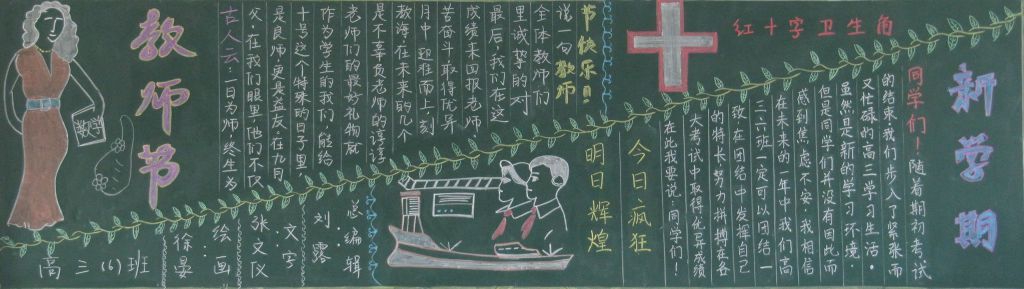 新学期
红十字卫生角
同学们！随着期初考试
的结束我们步入了紧张而
又忙碌的高三学习生活。
虽然是新的学习环境，
但是同学们并没有因此而
感到焦虑不安，我相信
在未来的一年中我们高
三六班一定可以团结一
致在团结中发挥自己
的特长努力拼搏在各
大考试中取得优异成绩
在此我要说：同学们！
今日疯狂
明日辉煌
教师节
古人云，一日为师，终生为
父，在我们眼里，他们不仅
是良师，更是益友，在九月
十号这个特殊的日子里，
作为学生的我们，能给
老师们的最好礼物就
是不辜负老师的谆谆
教诲在未来的几个
月中赶在雨上，刻
苦奋斗取得优异
成绩来回报老师，
最后，我们在这
里诚挚的对
全体教师们
说一句教师
节快乐！
教学
总编辑
刘露
文字：
张文仪
绘画：
徐晏
高三(6)班